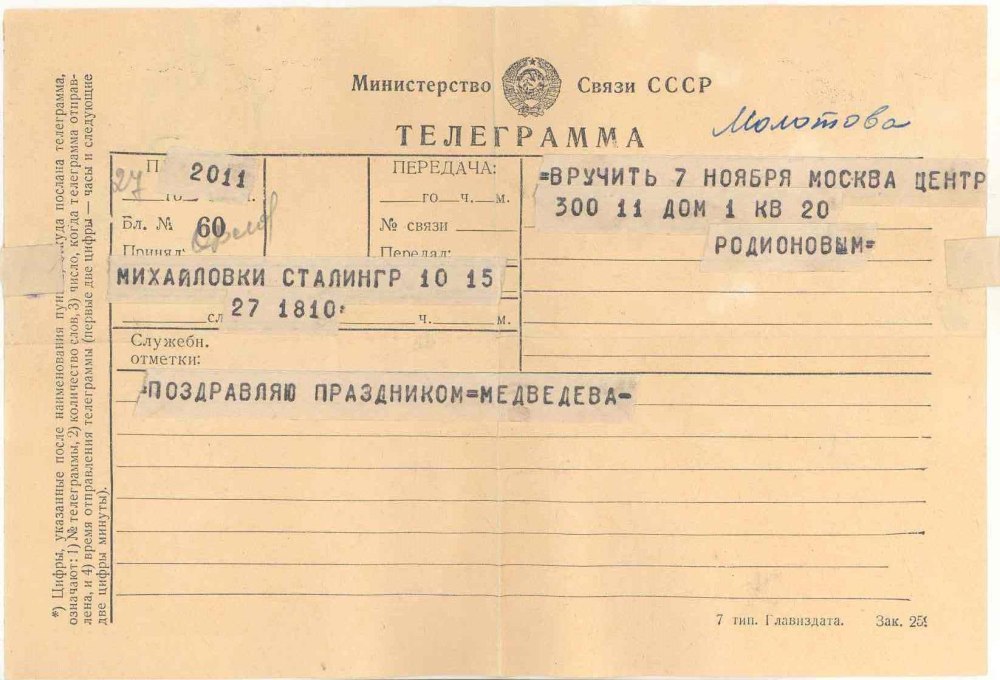 Министерство Связи СССР
ТЕЛЕГРАММА
Молотова
27
2011
го м.
Бл. № 60
Принял:
МИХАЙЛОВКИ СТАЛИНГР 10 15
сл 27 1810=
ч. м.
Служебн.
отметки:
ПЕРЕДАЧА:
го ч. м.
№ связи
Передал:
=ВРУЧИТЬ 7 НОЯБРЯ МОСКВА ЦЕНТР
300 11 ДОМ 1 КВ 20
РОДИОНОВЫМ=
=ПОЗДРАВЛЯЮ ПРАЗДНИКОМ=МЕДВЕДЕВА-
*) Цифры, указанные после наименования откуда послана телеграмма,
означают: 1) № телеграммы, 2) количество слов, 3) число, когда телеграмма отправ-
лена, и 4) время отправления телеграммы (первые две цифры — часы и следующие
две цифры минуты).
7 тип. Главиздата. Зак. 259